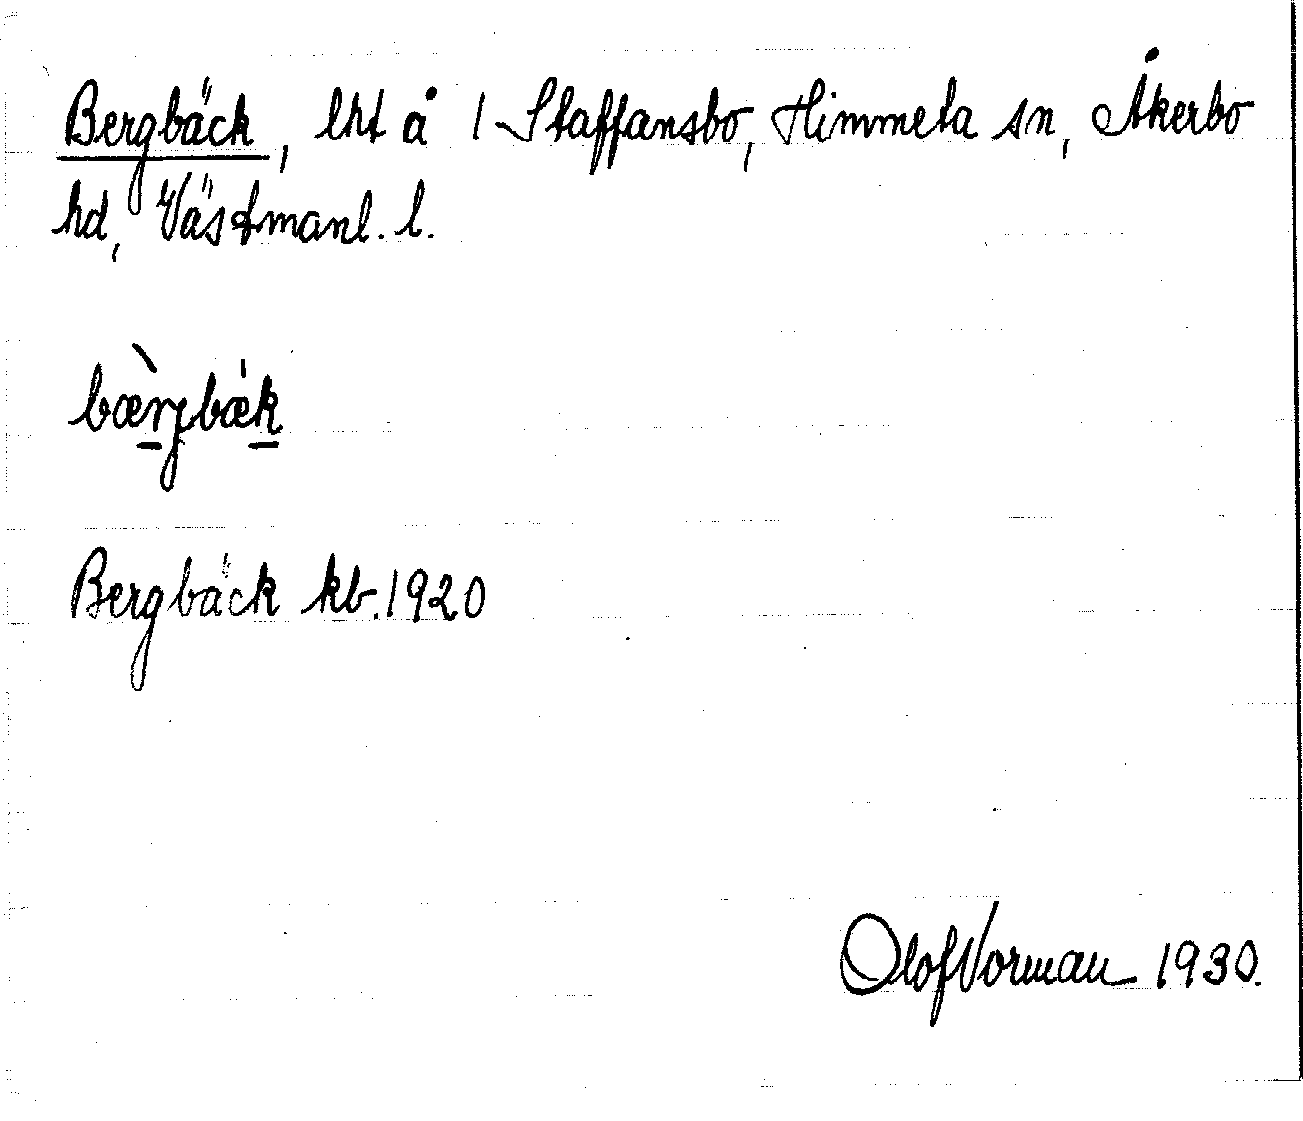 Bergbäck, lht å 1 Staffansbo, Himmeta sn, Åkerbo
hd, Västmanl. l.
bæ̀rjbæ̍k
Bergbäck kb. 1920
Olof Norman 1930.